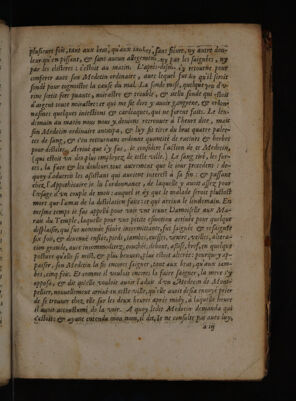 plusieurs fois, tant aux bras, qu'aux iambes, sans fieure, ny autre dou-
leur qu'en pissant, & sans aucun allegement, ny par les saignées, ny
par les clisteres : c'estoit au matin. L'apres-disnée i'y retourne pour
conferer auec son Medecin ordinaire, auec lequel fut qu'il seroit
sondé pour cognoistre la cause du mal. La sonde mise, quelque peu d'v-
rine sortit fort puante, & trouble, & celle sonde qui estoit
d'argent toute noire & gangrene, &
quelques iniections & qui ne furent faits. Le len-
demain au matin nous nous y deuons retrouuer à l'heure dite, mais
son Medecin ordinaire anticipa, & luy fit tirer du bras quatre palet-
tes de sang, & s'en retournant ordonna quantité de racines & herbes
pour distiller. Arriué que i'y fus, ie considere l'action de ce Medecin,
(qui estoit vn des plus employez de ceste ville.) Le sang tiré, les for-
ces, la face & les douleurs tout autrement que le iour precedent : de-
quoy i'aduertis les assistans qui auoient interest à sa fin : & passant
chez l'Appothicaire la l'ordonnance, de laquelle y auoit assez pour
l'vsage d'vn couple de mois : auquel ie dy que le malade seroit plustost
mort que l'amas de la distillation faite : ce qui arriua le lendemain. En
mesme temps ie fus appellé pour voir vne ieune Damoiselle aux Ma-
rais du Temple, laquelle pour vne petite esmotion arriuée pour quelque
desplaisir, qui fut nommée fieure intermittente, fut saignée & resaignée
six fois, & deuenuë enflée, pieds, iambes, cuisses, ventre, visage, altera-
tion grande, auec incommoditez, couchée, debout, assise, bref, en quelque
posture qu'elle se mist, & plus beuuoit, plus estoit alterée: pourquoy ap-
paiser, son Medecin la fit encores saigner, tant aux bras, qu'aux iam-
bes, cinq fois. Et comme il vouloit encores la faire saigner, la mere s'y
opposa, & dit qu'elle vouloit auoir l'aduis d'vn Medecin de Mont-
pellier, nouuellement arriué en ceste ville, qu'elle auoit desia enuoyé prier
de se trouuer chez elle sur les deux heures apres midy, à laquelle heure
il auoit accoustumé de la voir. A quoy ledit Medecin demanda qui
c'estoit : & ayant entendu mon nom, il dit, ie ne consulte pas auec luy,
a iij